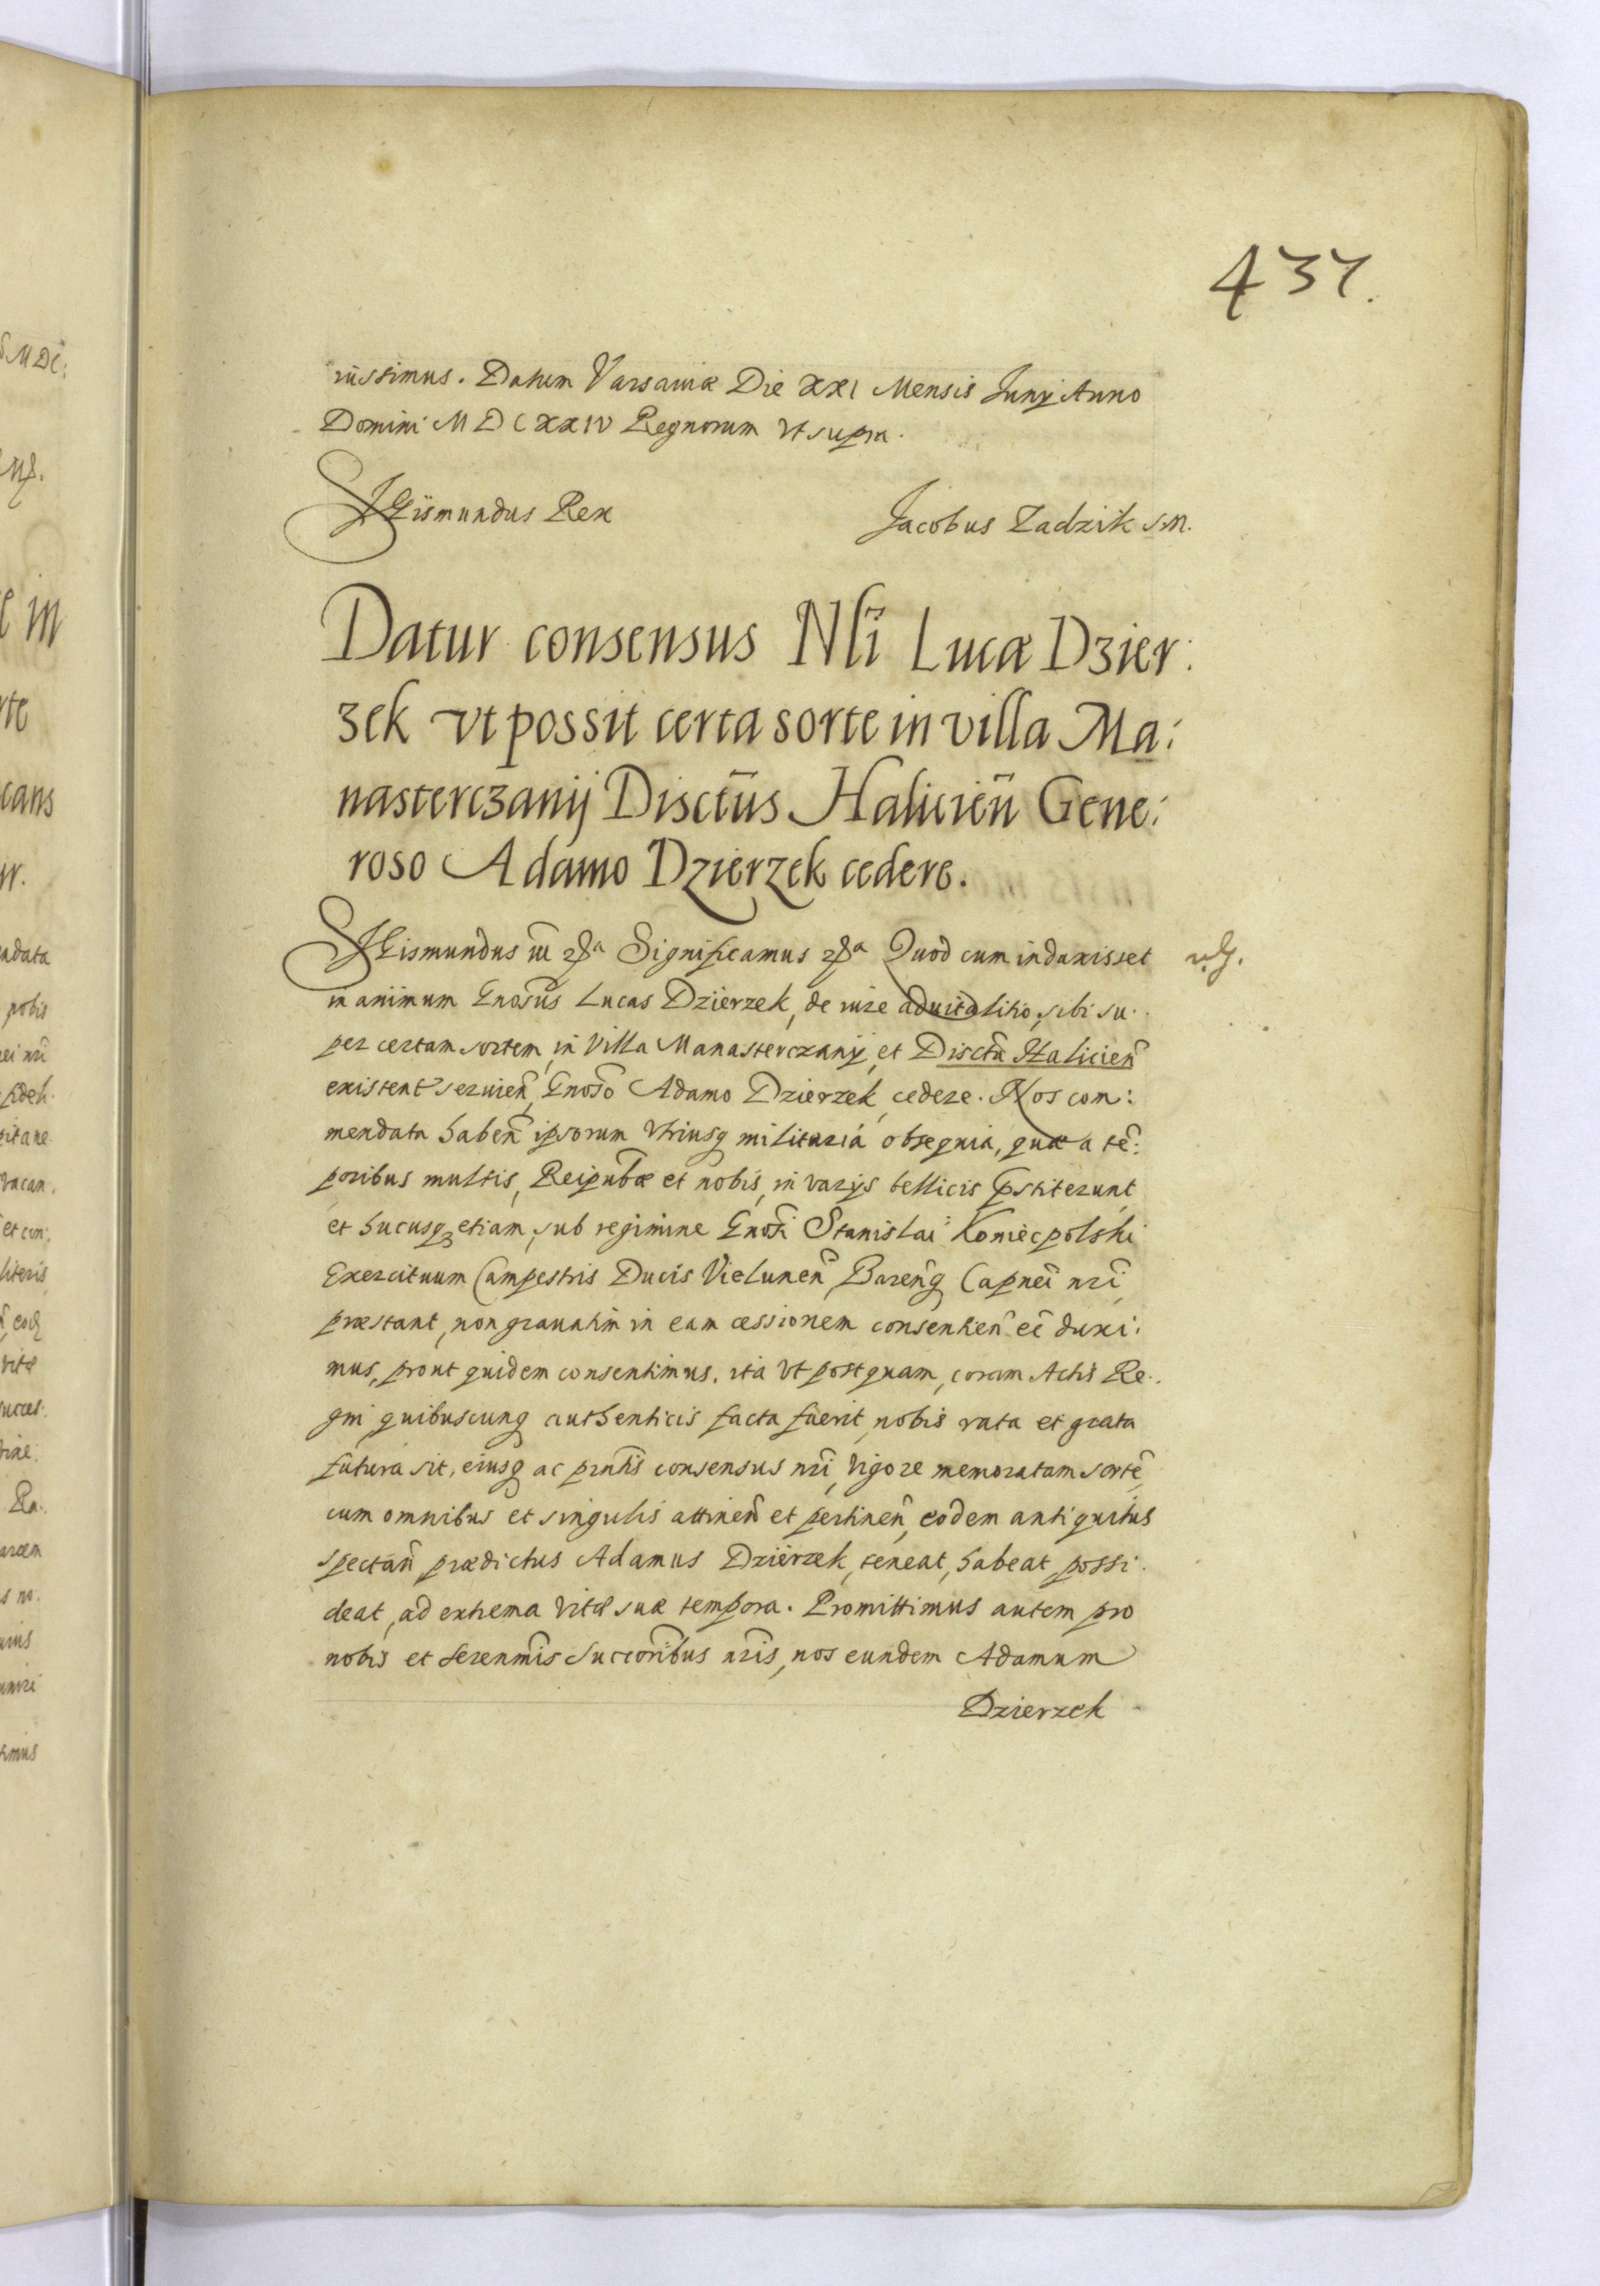 437.
iussimus. Datum Varsaviæ Die XXI Mensis Junij Anno
Domini MDCXXIV Regnorum vt supra.
Sigismundus Rex
Jacobus Zadzik S.M.
Datur consensus Nli Lucæ Dzier:
zek vt possit certa sorte in villa Ma:
nasterczanij Disctũs Halicieñ Gene:
roso Adamo Dzierzek cedere.
Sigismundus III Significamus Quod cum induxisset
in animum Gnosus Lucas Dzierzek, de iure aduitalitio, sibi su.
per certam sortem, in Villa Manasterczanij, et Disctũ Halicieñ
existent seruieñ, Gnoso Adamo Dzierzek, cedere. Nos com:
mendata habeñ ipsorum vtriusq militaria obsequia, quæ a tẽ:
poribus multis, Reipubæ et nobis, in varijs bellicis p̃stiterunt,
et hucusq etiam, sub regimine Gnosi Stanislai Koniecpolski
Exercituum Campestris Ducis Vieluneñ, Bareñq Capnei nri,
præstant, non grauatim in eam cessionem consentieñ eẽ duxi:
mus, prout quidem consentimus. ita vt postquam, coram Actis Re.
gni quibuscunq authenticis facta fuerit, nobis rata et grata
futura sit, eiusq ac pñtis consensus nri, vigore memoratam sortẽ,
cum omnibus et singulis attineñ et pertineñ, eodem antiquitus
spectañ prædictus Adamus Dzierzek, teneat, habeat, possi.
deat, ad extrema vitæ suæ tempora. Promittimus autem pro
nobis et Serenmis Succoribus nris, nos eundem Adamum
Dzierzek